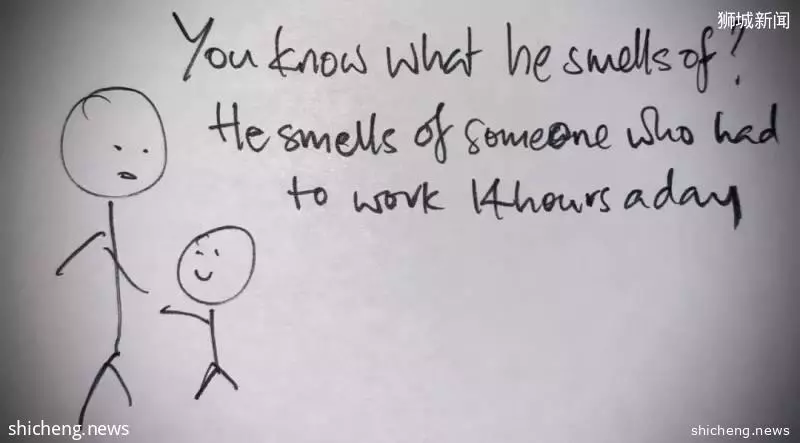 狮城新闻
You know what he smells of?
He smells of someone who had
to work 14 hours a day
shicheng.news
shicheng.news